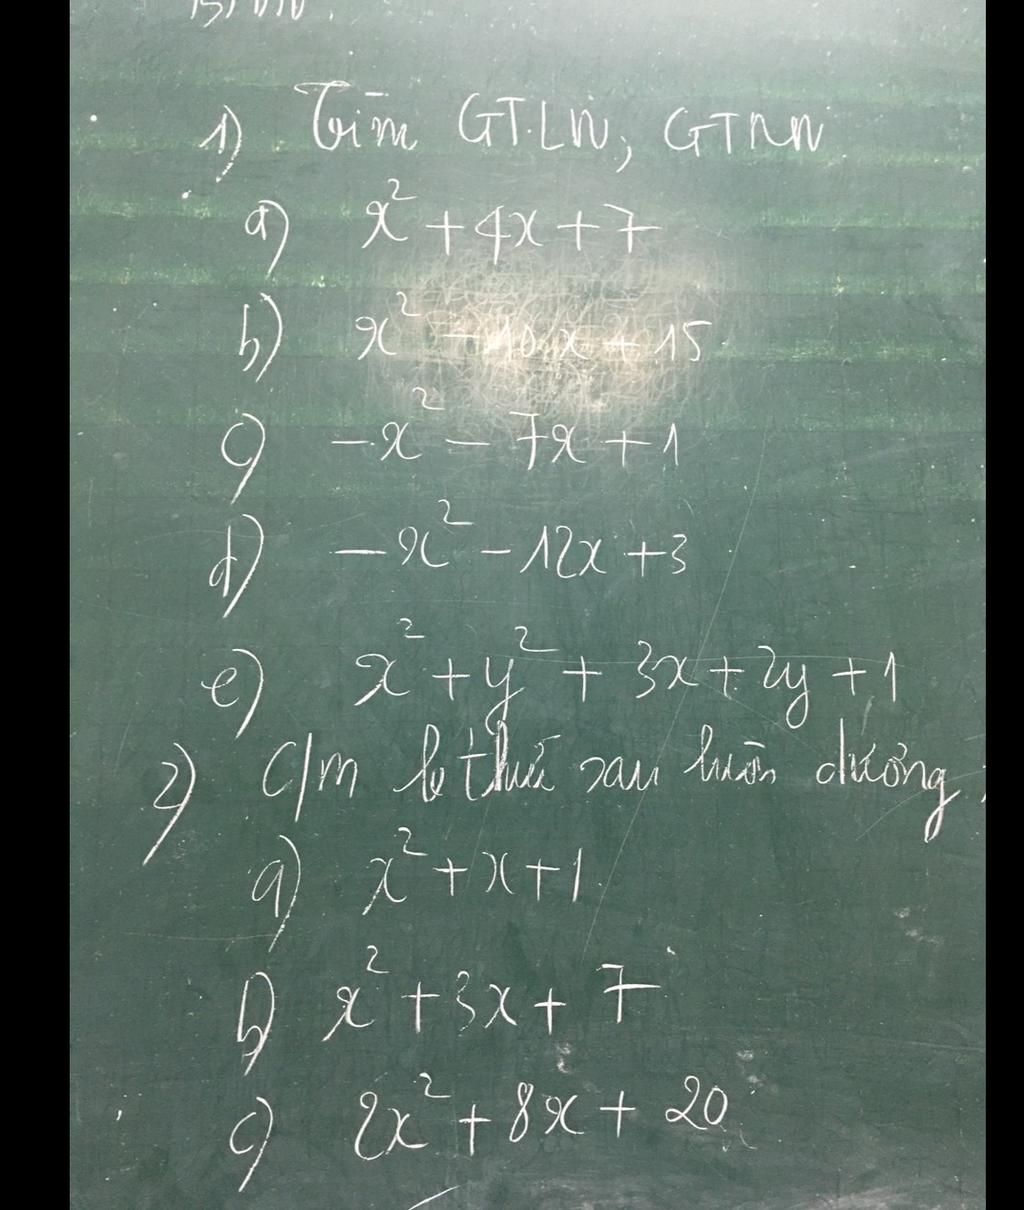 1) Tìm GTLN; GTNN
a) x² + 4x + 7
b) x² - 10x + 15
c) -x² - 7x + 1
d) -x² - 12x + 3
e) x² + y² + 3x + 2y + 1
2) C/m b thức sau luôn dương
a) x² + x + 1
b) x² + 3x + 7
c) 2x² + 8x + 20